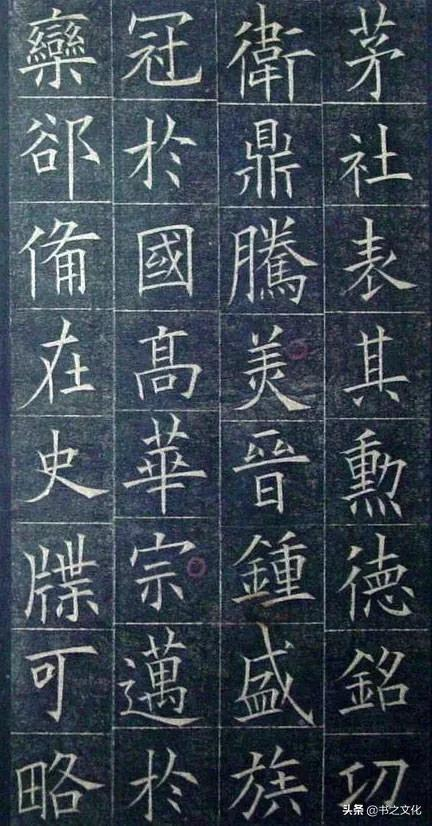 茅社表其勲德銘功
衛鼎騰美晉鍾盛族
冠於國髙華宗邁於
欒郤備在史牒可略
头条 @书之文化